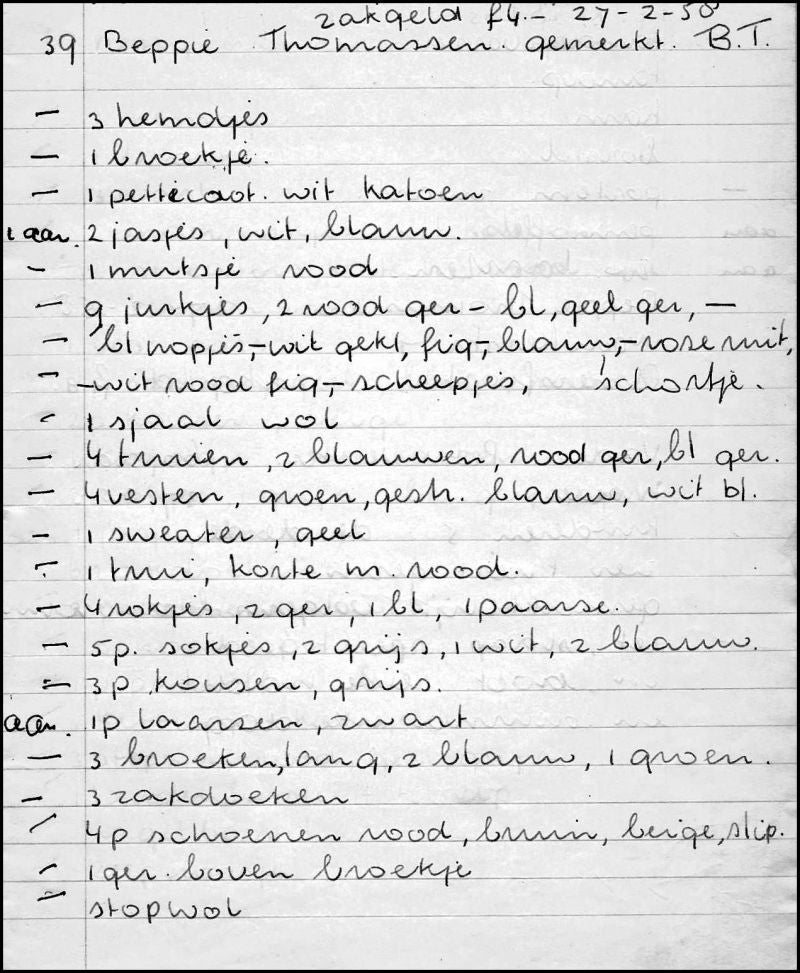 zakgeld f4.- 27-2-58
39 Beppie Thomassen. gemerkt. B.T.
— 3 hemdjes
— 1 broekje.
— 1 petticoat. wit katoen
1 aan. 2 jasjes, wit, blauw.
- 1 mutsje rood
— 9 jurkjes, 2 rood ger - bl, geel ger, —
— bl nopjes,- wit gekl, fig,- blauw,- rose ruit,
- -wit rood fig,- scheepjes, 1 schortje.
- 1 sjaal wol
— 4 truien, 2 blauwen, rood ger, bl ger.
— 4 vesten, groen, gestr. blauw, wit bl.
- 1 sweater, geel
- 1 trui, korte m. rood.
— 4 rokjes, 2 ger, 1 bl, 1 paarse.
— 5p. sokjes, 2 grijs, 1 wit, 2 blauw.
= 3p kousen, grijs.
aan. 1p laarzen, zwart
— 3 broeken, lang, 2 blauw, 1 groen.
- 3 zakdoeken
- 4p schoenen rood, bruin, beige, slip.
- 1 ger. boven broekje
- stopwol